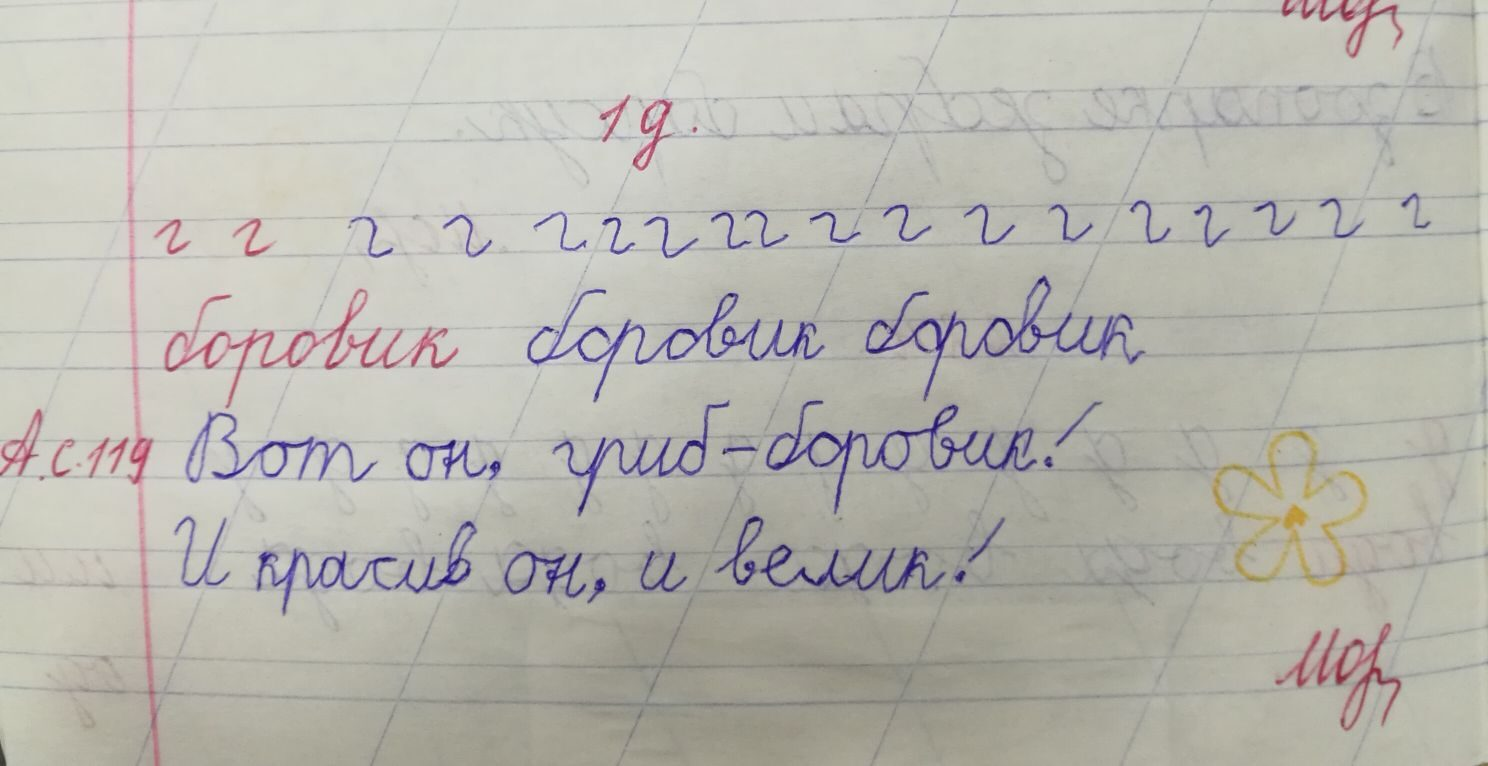 19.
г г г г г г г г г г г г г г г г г г
боровик боровик боровик
А.с.119 Вот он, гриб-боровик!
И красив он, и велик!